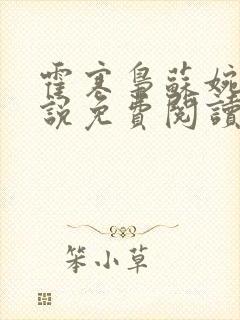 霍寒梟蘇婉
說免費閱讀
笨小草